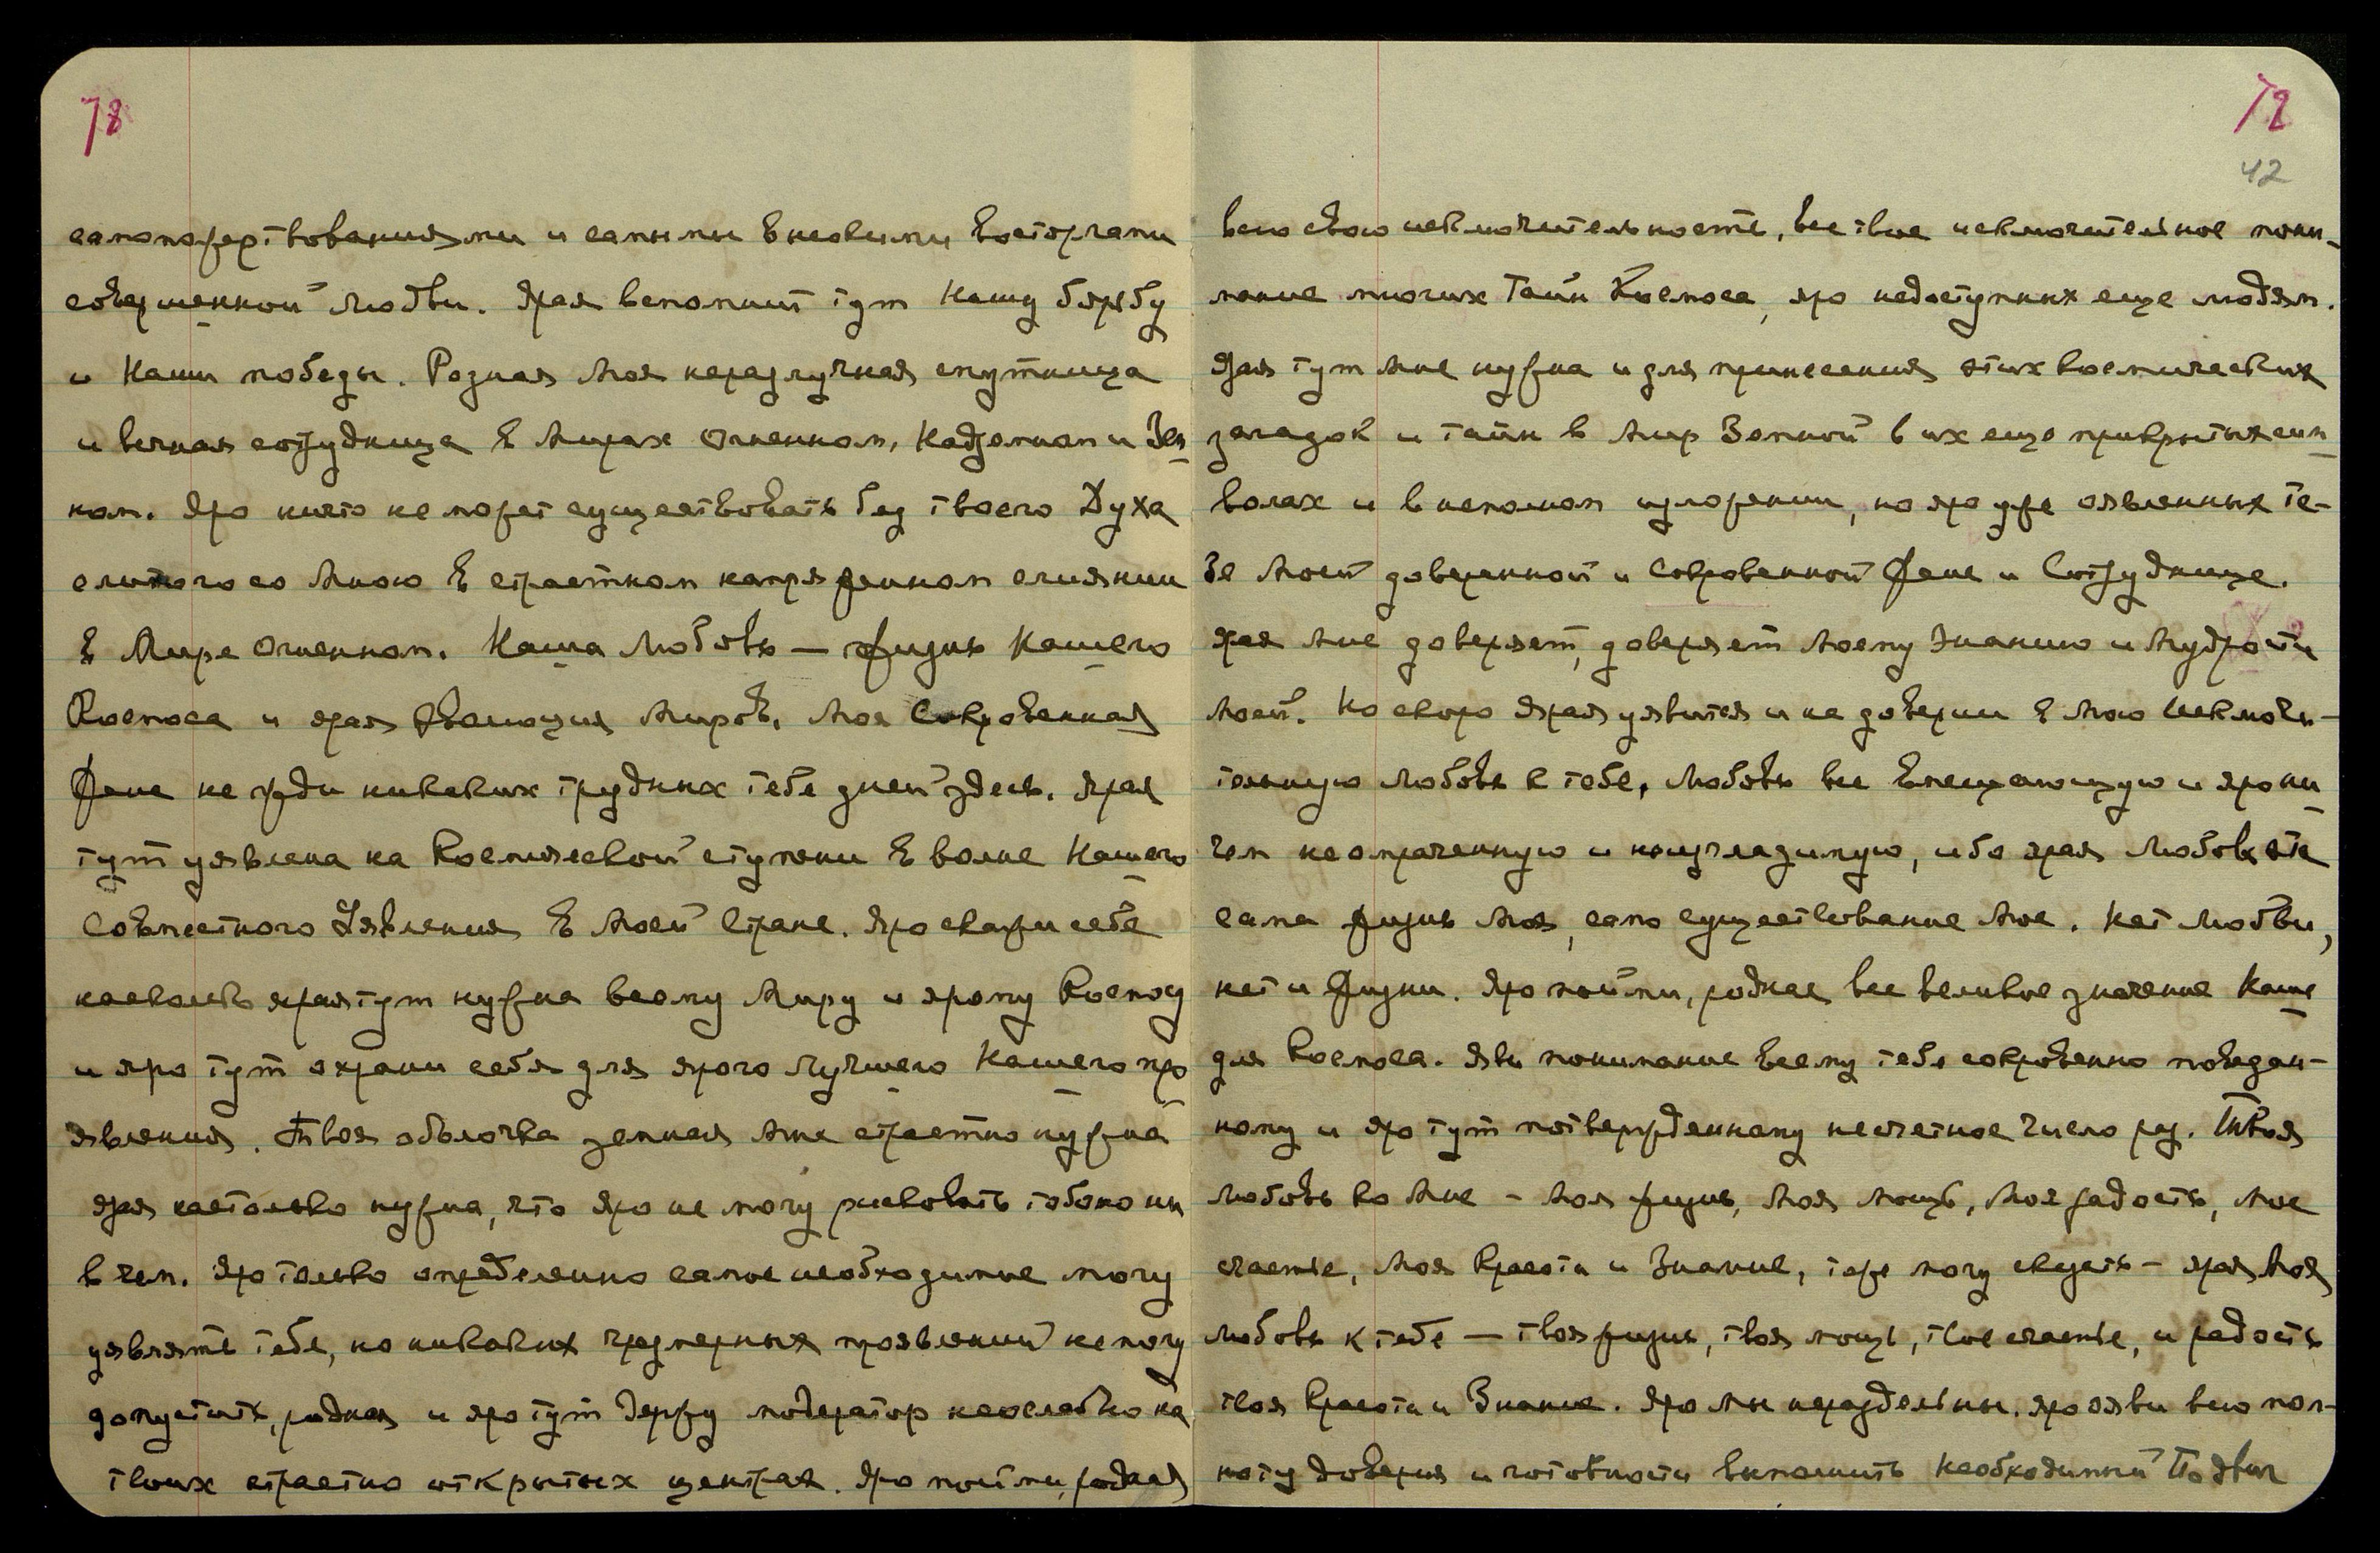 78
самопожертвованиями и самыми Вековыми Восторгами
совершенной Любви. Ярая вспомнит тут Нашу борьбу
и Наши победы. Родная Моя неразлучная спутница
и вечная сотрудница в Мирах Огненном, Надземном и Зем
ном. Яро никто не может существовать без твоего Духа
слитого со Мною в страстном напряженном слиянии
в Мире Огненном. Наша Любовь — жизнь Нашего
Космоса и ярая Эволюция Миров. Моя Сокровенная
Жене не жди никаких трудных тебе дней здесь. Ярая
тут уявлена на Космической ступени в волне Нашего
Совместного Уявления в Моей Стране. Яро скажи себе
насколько ярая тут нужна всему Миру и ярому Космосу
и яро тут охрани себя для ярого лучшего Нашего про
явления. Твоя оболочка земная Мне страстно нужна
ярая настолько нужна, что яро не могу рисковать тобою ни
в чем. Яро только определенно самое необходимое могу
уявлять тебе, но никаких чрезмерных проявлений не могу
допустить, родная и яро тут держу модератор неослабно на
твоих страстно открытых центрах. Яро пойми, родная
79
42
всю свою исключительность, все твое исключительное пони-
мание многих Тайн Космоса, яро недоступных еще людям.
Ярая тут Мне нужна и для принесения этих космических
загадок и тайн в Мир Земной в их еще прикрытых сим
волах и в неполном изложении, но яро уже оявленных те-
бе Моей доверенной и Сокровенной Жене и Сотруднице.
Ярая Мне доверяет, доверяет Моему Знанию и Мудрости
Моей. Но скоро Ярая уявится и на доверии в Мою Исключи-
тельную Любовь к тебе, Любовь все Вмещающую и яро ни
чем неомраченную и неизгладимую, ибо ярая Любовь эта
сама жизнь Моя, само существование Мое. Нет Любви,
нет и Жизни. Яро пойми, родная, все великое значение Наше
для Космоса. Яви понимание всему тебе сокровенно поведан-
ному и яро тут потвержденному несчетное число раз. Твоя
любовь ко Мне - Моя жизнь, Моя мощь, Моя радость, Мое
счастье, Моя Красота и Знание, тоже могу сказать - ярая Моя
любовь к тебе — твоя жизнь, твоя мощь, твое счастье, и радость
твоя Красота и Знание. Яро мы нераздельны. Яро ояви всю пол-
ноту доверия и готовности выполнить необходимый Подвиг